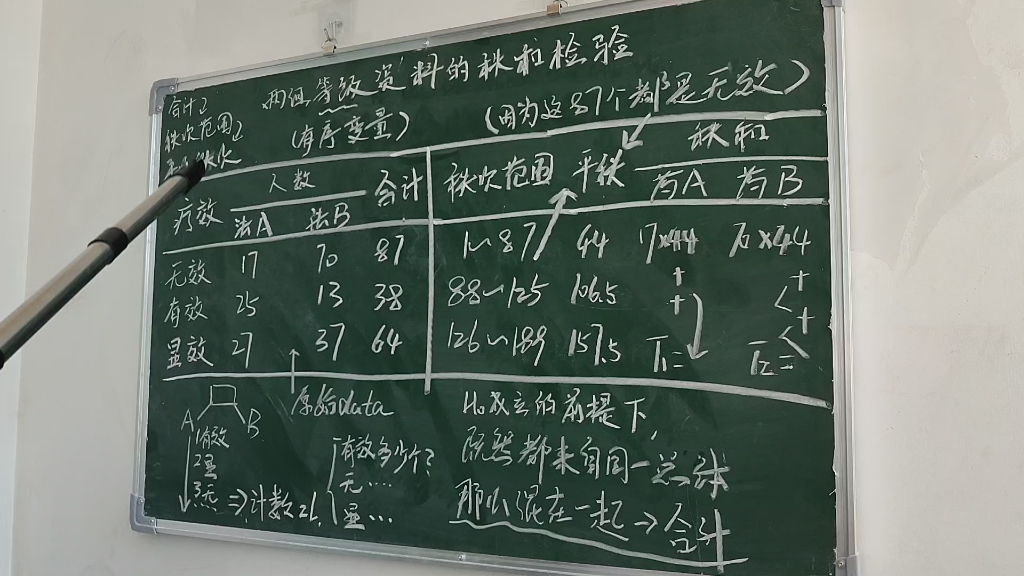 两组等级资料的秩和检验
(有序变量)
(因为这87个都是无效)
合计↓
秩次范围↓
人数 合计 秩次范围 平秩 秩和
疗效 法A 法B 药A 药B
无效 17 70 87 1~87 44 17×44 70×44
有效 25 13 38 88~125 106.5 + +
显效 27 37 64 126~189 157.5 + +
T₁= T₂=
原始data
A B
1有效
2显
3无 ⇒计数24.
有效多少个?
无····
显···
H₀成立的前提下,
既然都来自同一总体
那么混在一起→合计